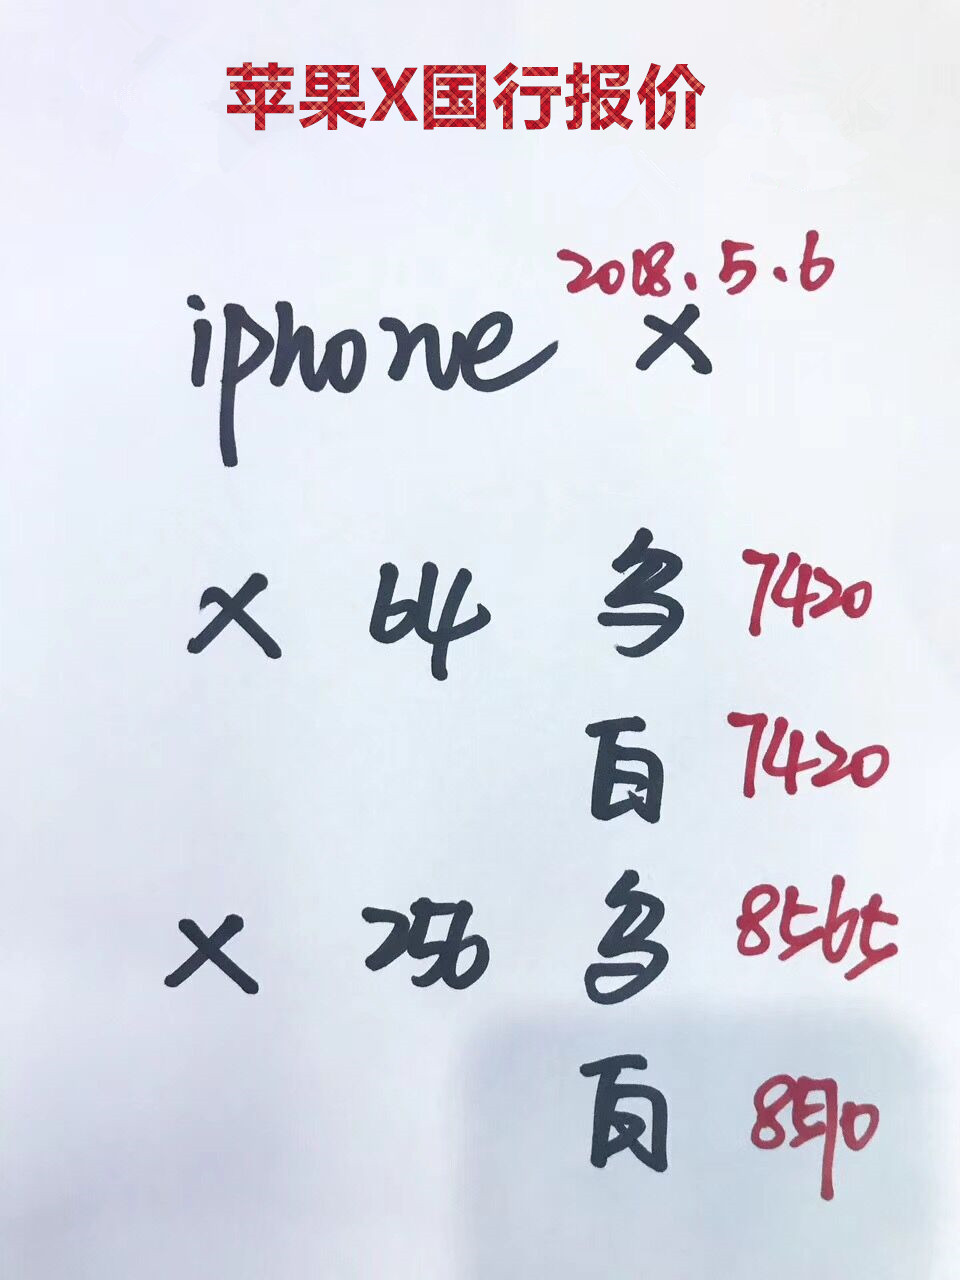 苹果X国行报价
2018.5.6
iphone X
X 64 乌 7420
百 7420
X 256 乌 8565
百 8590